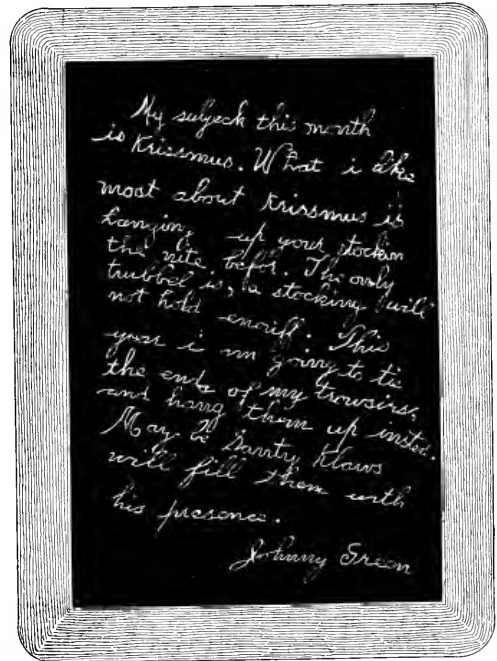 My subjeck this month
is Krissmus. What i like
most about Krissmus is
hanging up your stockin
the nite befor. The only
trubbel is, a stocking will
not hold enouff. This
year i am going to tie
the ends of my trowsirs,
and hang them up insted.
May be Santy Klaws
will fill them with
his presence.
Johnny Green